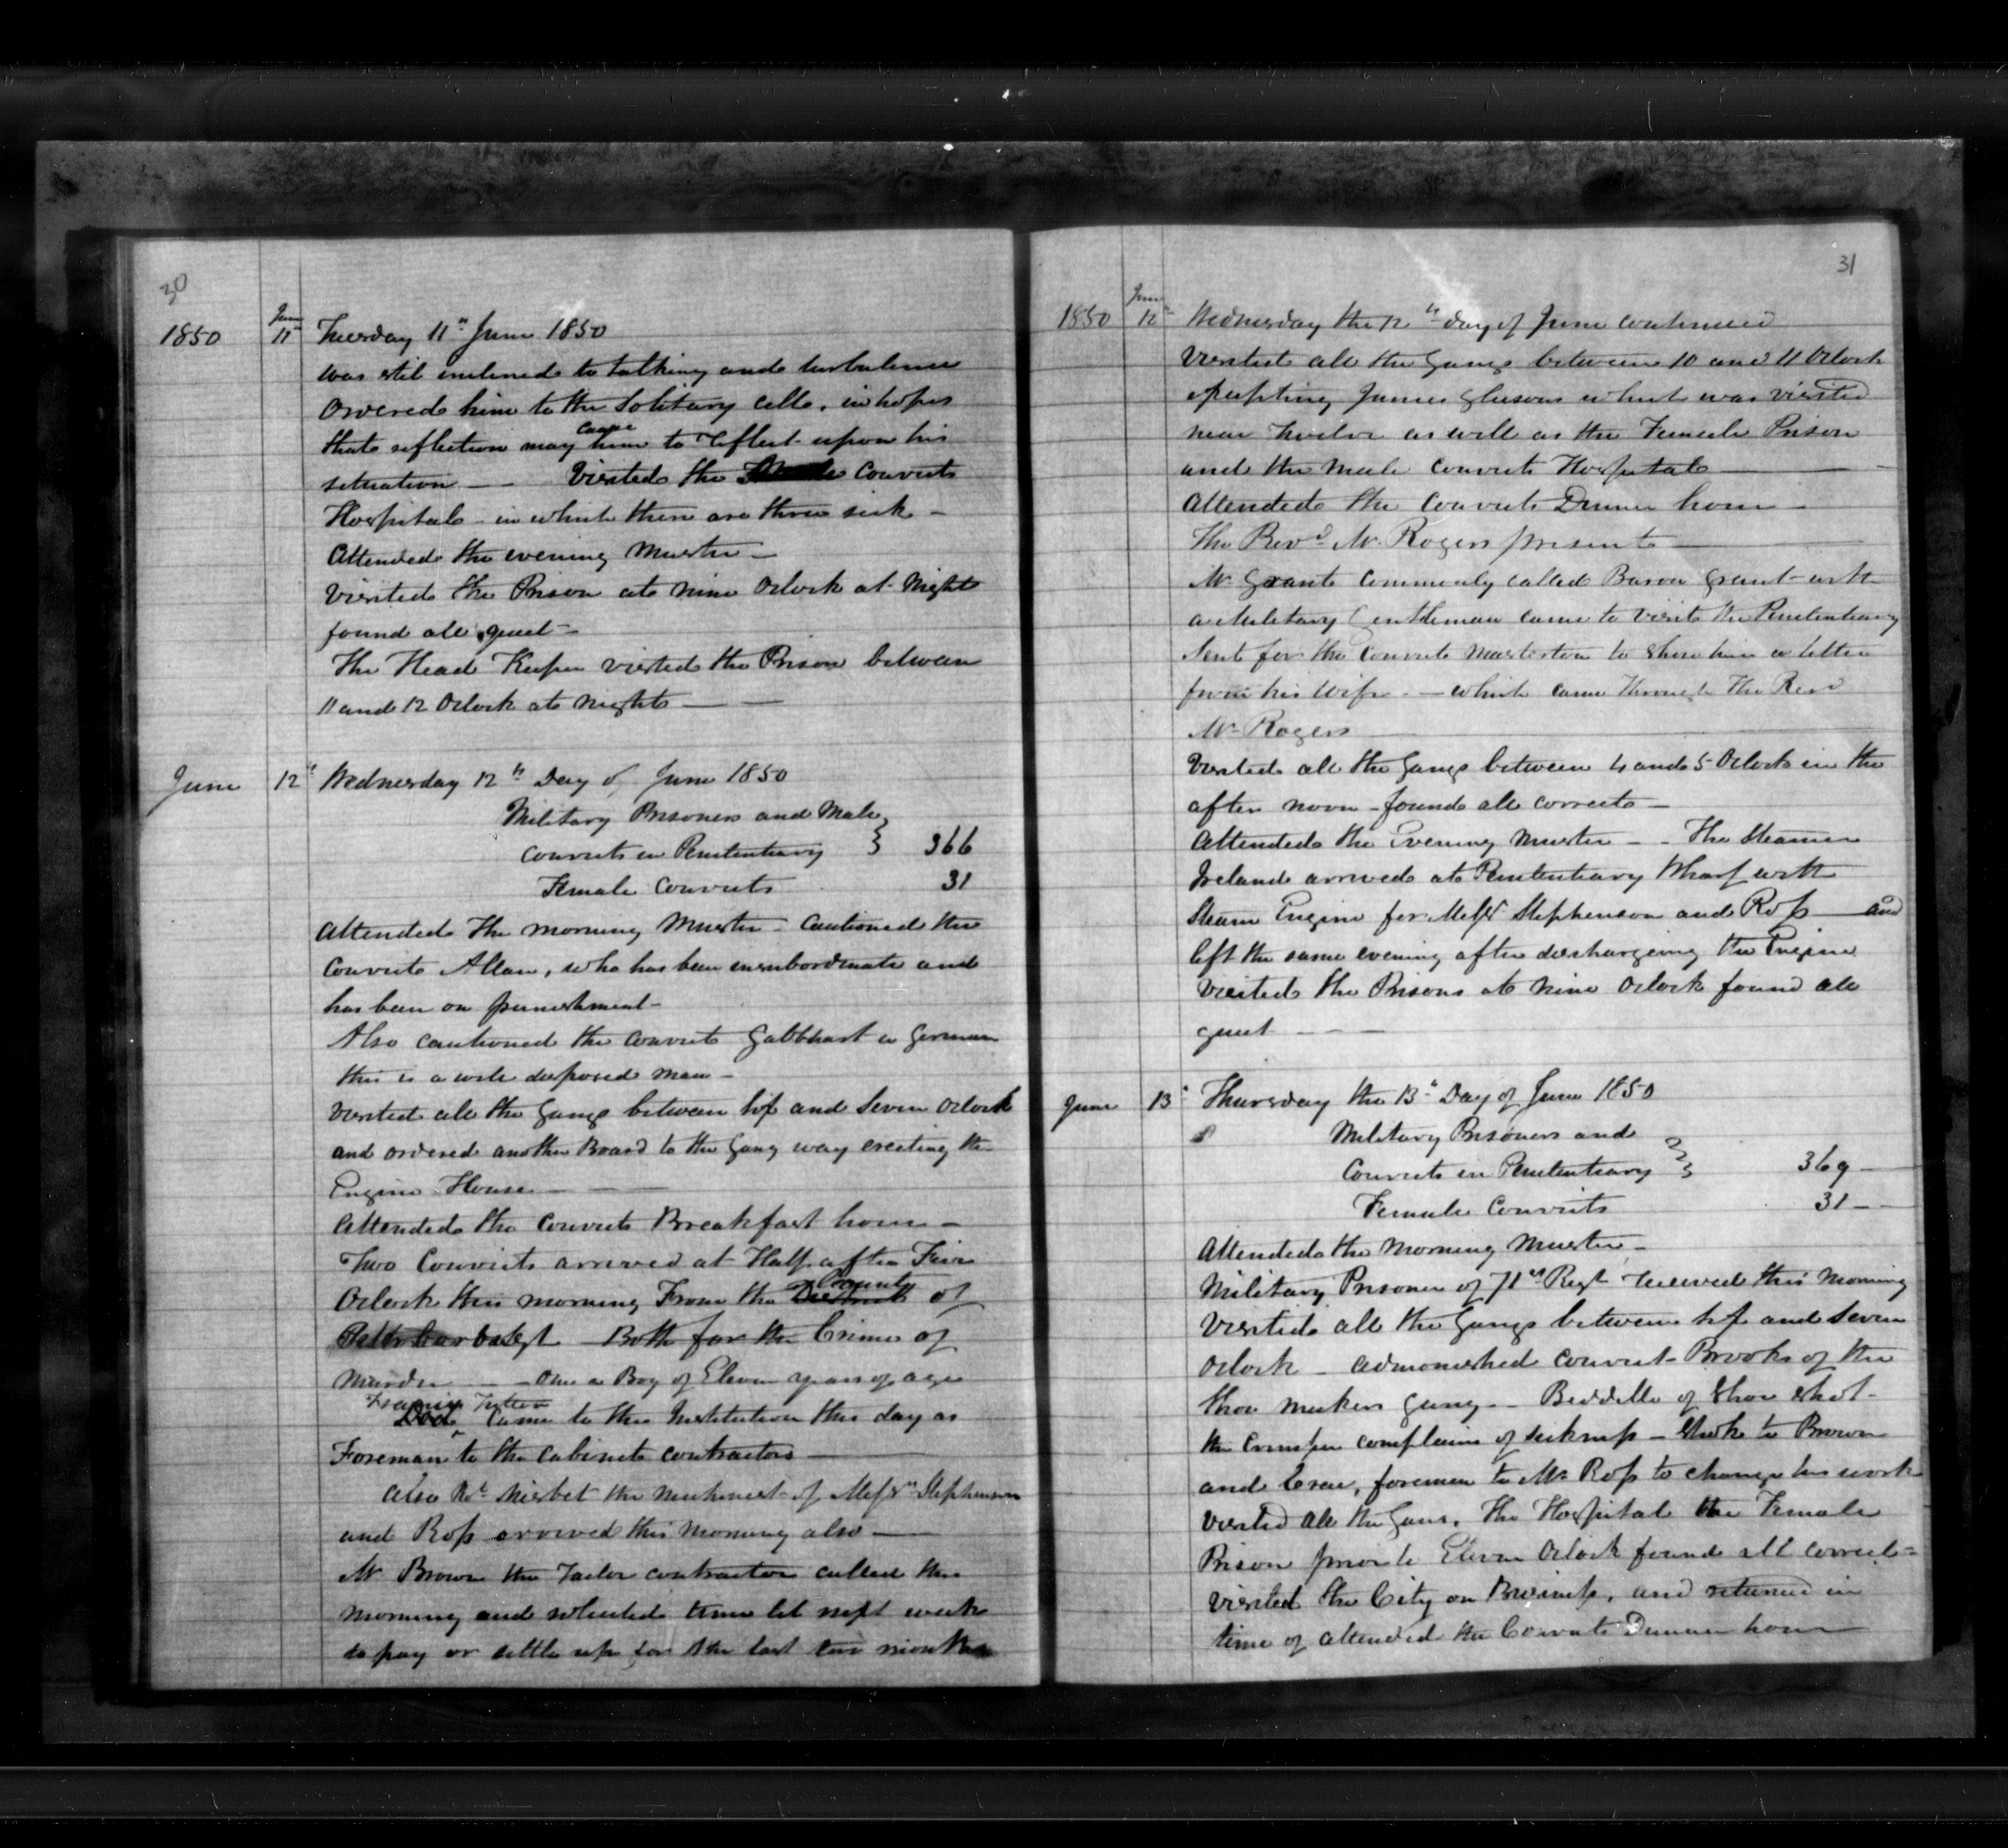 30
1850 June 11th Tuesday 11th June 1850
was stil enclined to talking and turbulence
Ordered him to the Solitary cell, in hopes
that reflection may cause him to reflect upon his
situation — Visited the Convicts
Hospital in which there are three sick —
Attended the evening Muster —
Visited the Prison at nine Oclock at Night
found all quiet —
The Head Keeper visited the Prison between
11 and 12 Oclock at night —
June 12th Wednesday 12th Day of June 1850
Military Prisoners and Male
Convicts in Penitentiary } 366
Female Convicts 31
Attended the morning Muster — Cautioned the
Convict Allan, who has been insubordinate and
has been on punishment —
Also cautioned the convict Gabbhart a German
this is a well disposed man —
Visited all the Gangs between six and Seven Oclock
and ordered another Board to the Gang way erecting the
Engine House —
Attended the Convicts Breakfast hour —
Two Convicts arrived at Half after Five
Oclock this morning From the District County of
Both for the Crime of
Murder — One a Boy of Eleven years of age
came to this Institution this day as
Foreman to the Cabinet contractors —
Also Rot Nisbet the Machinest of Messrs Stephenson
and Ross arrived this Morning also —
Mr Brown the Tailor contractor called this
Morning and solicited time til next week
to pay or settle up for the last two months
31
1850 June 12th Wednesday the 12th day of June continued
Visited all the Gangs between 10 and 11 Oclock
excepting James Gleesons which was visited
near Twelve as well as the Female Prison
and the Male Convicts Hospital —
Attended the Convicts Dinner hour —
The Revd Mr Rogers present —
Mr Grant commonly called Baron Grant with
a Military Gentleman came to visit the Penitentiary
Sent for the Convict Masterton to show him a letter
from his wife — which came through the Revd
Mr Rogers
Visited all the Gangs between 4 and 5 Oclock in the
after noon — found all correct —
Attended the Evening Muster — The Steamer
Ireland arrived at Penitentiary Wharf with
Steam Engine for Messrs Stephenson and Ross — and
left the same evening after discharging the Engine
Visited the Prisons at nine Oclock found all
quiet —
June 13th Thursday the 13th Day of June 1850
Military Prisoners and
Convicts in Penitentiary } 369 —
Female Convicts 31 —
Attended the Morning Muster —
Military Prisoner of 71st Regt received this Morning
Visited all the Gangs between six and Seven
Oclock — admonished convict Brooks of the
Shoe makers gang — Beddelle of Shoe shop
the Crimper complains of sickness — Spoke to Brown
and , foreman to Mr Ross to change his work
Visited all the Gans, the Hospital the Female
Prison prior to Eleven Oclock found all correct —
Visited the City on Business, and returned in
time of attended the Convicts Dinner hour